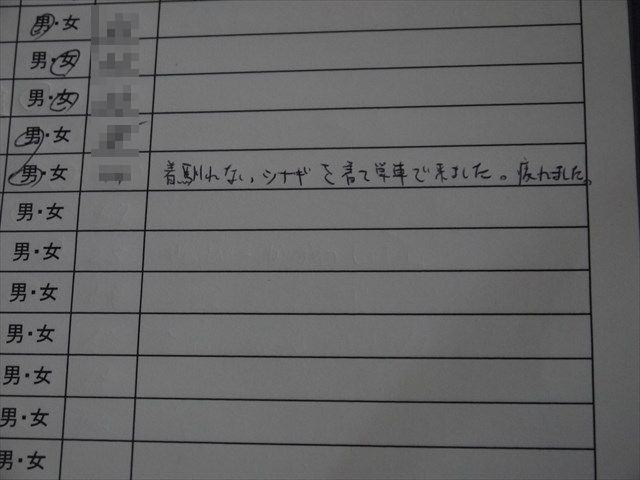 男・女
男・女
男・女
男・女
男・女 着馴れない、シナギを着て単車で来ました。疲れました。
男・女
男・女
男・女
男・女
男・女
男・女
男・女